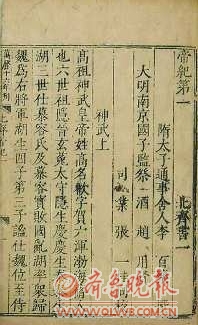 帝紀第一
北齊書一
隋太子通事舍人李百
大明南京國子監祭酒趙用
司業張一
神武上
高祖神武皇帝姓高名歡字賀六渾勃海
也六世祖隱晉玄菟太守隱生慶慶生泰
湖三世仕慕容氏及慕容寶敗國亂湖率衆歸
魏爲右將軍湖生四子第三子謐仕魏位至侍
齊魯晚報